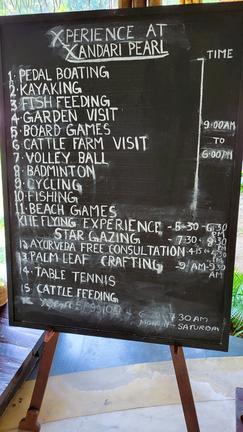 XPERIENCE AT
XANDARI PEARL
TIME
1. PEDAL BOATING
2. KAYAKING
3. FISH FEEDING
4. GARDEN VISIT
5. BOARD GAMES
6. CATTLE FARM VISIT
7. VOLLEY BALL
8. BADMINTON
9. CYCLING
10. FISHING
11. BEACH GAMES
9:00AM
TO
6:00PM
KITE FLYING EXPERIENCE - 5:30-6:30 PM
STAR GAZING - 7:30-
12. AYURVEDA FREE CONSULTATION
13. PALM LEAF CRAFTING - 9 AM-9:30 AM
14. TABLE TENNIS
15. CATTLE FEEDING
7.30AM
SATURDAY